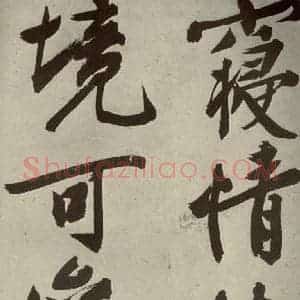 寢情
境可
Shufaziliao.COM